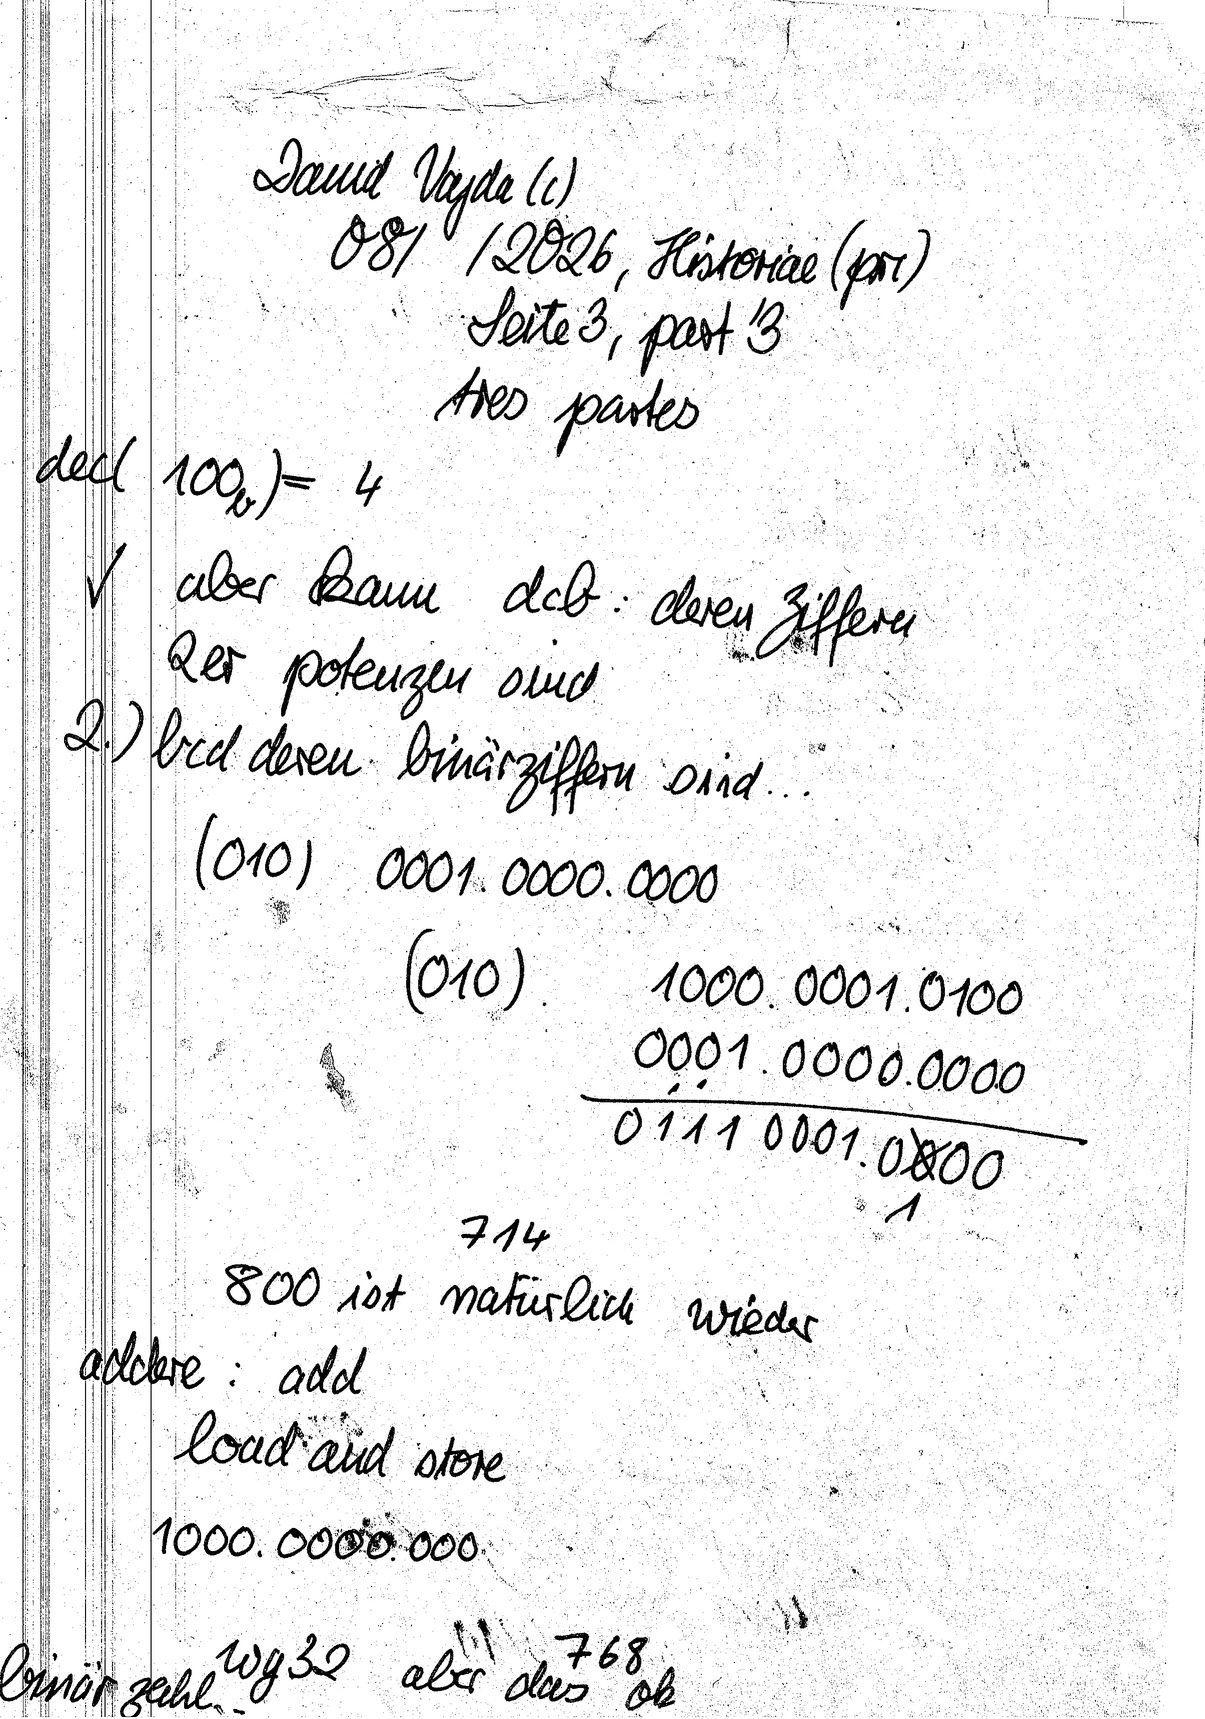 David Vajda (c)
08/ /2026, Historiae (pri)
Seite 3, part 3
tres partes
dec( 100b) = 4
√ aber kann dcb: deren Ziffern
2er potenzen sind
2.) bcd deren binärziffern sind...
(010) 0001.0000.0000
(010) 1000.0001.0100
0001.0000.0000
0111 0001.0000
1
714
800 ist natürlich wieder
addere: add
load and store
1000.0000.000
wg32 aber das 768 ok
binärzahl...